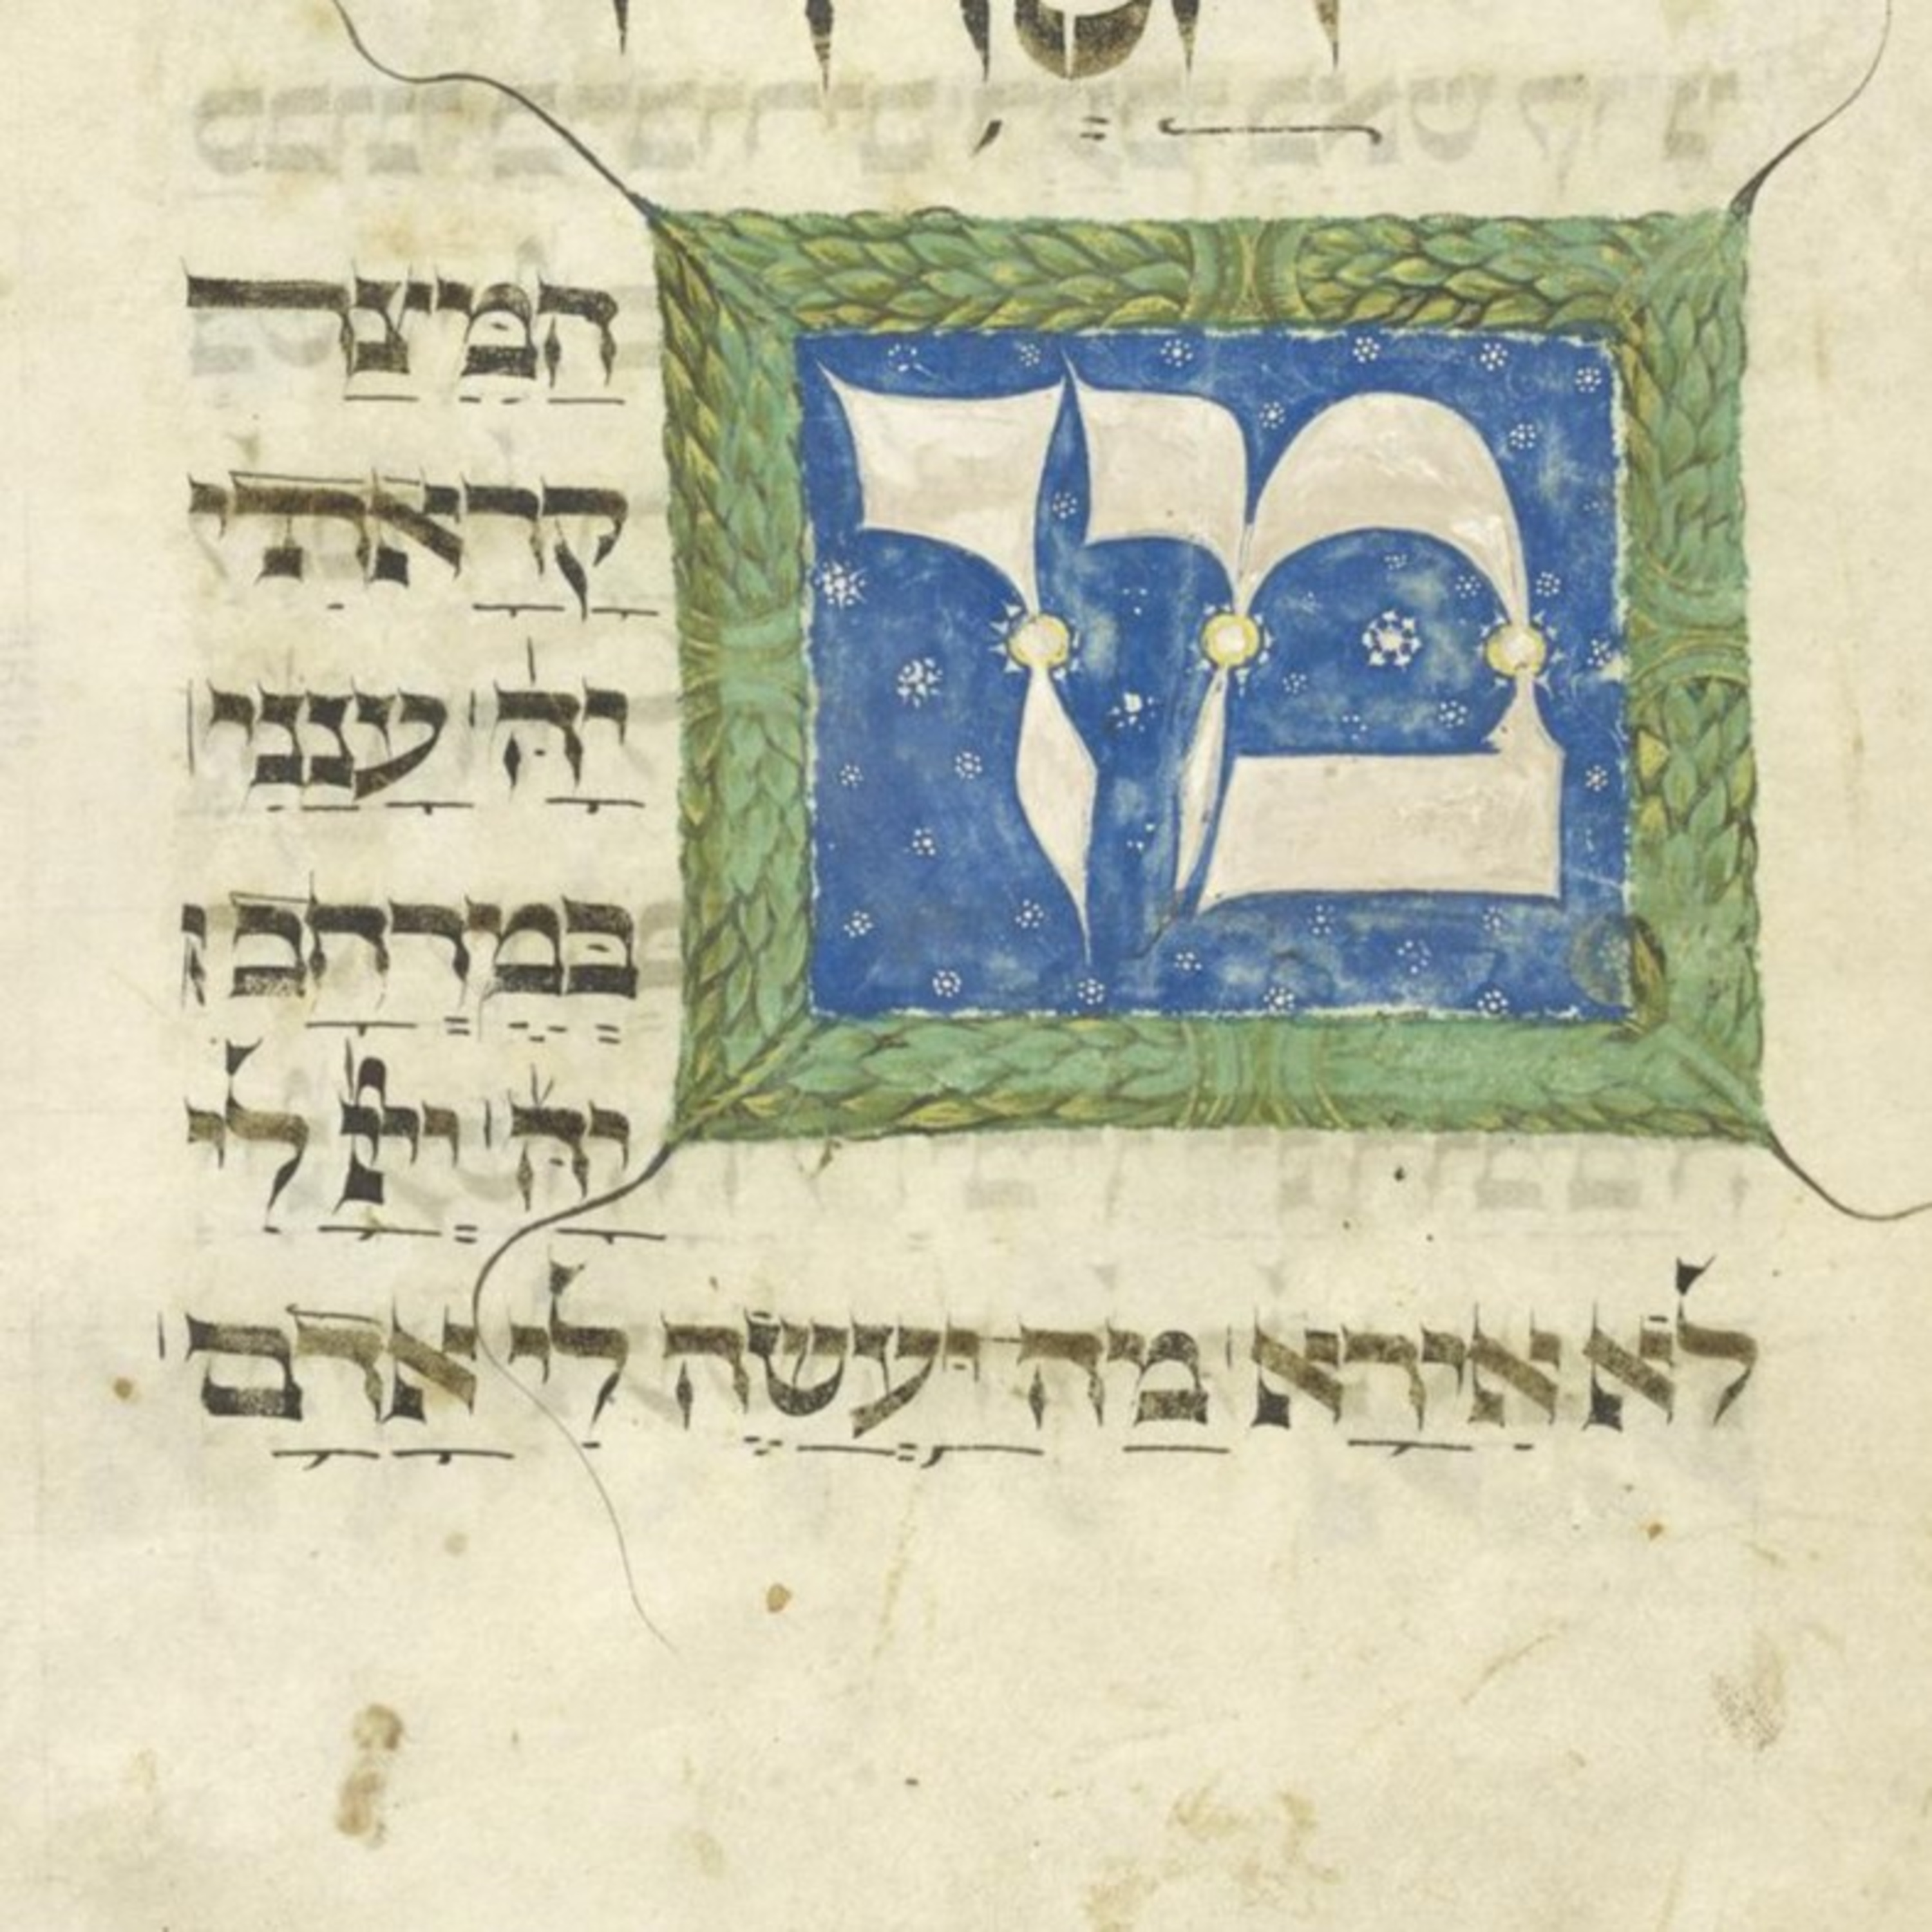 מִן
הַמֵּצַר
קָרָאתִי
יָהּ עָנַנִי
בַּמֶּרְחָב
יָהּ יְיָ לִי
לֹא אִירָא מַה יַּעֲשֶׂה לִי אָדָם